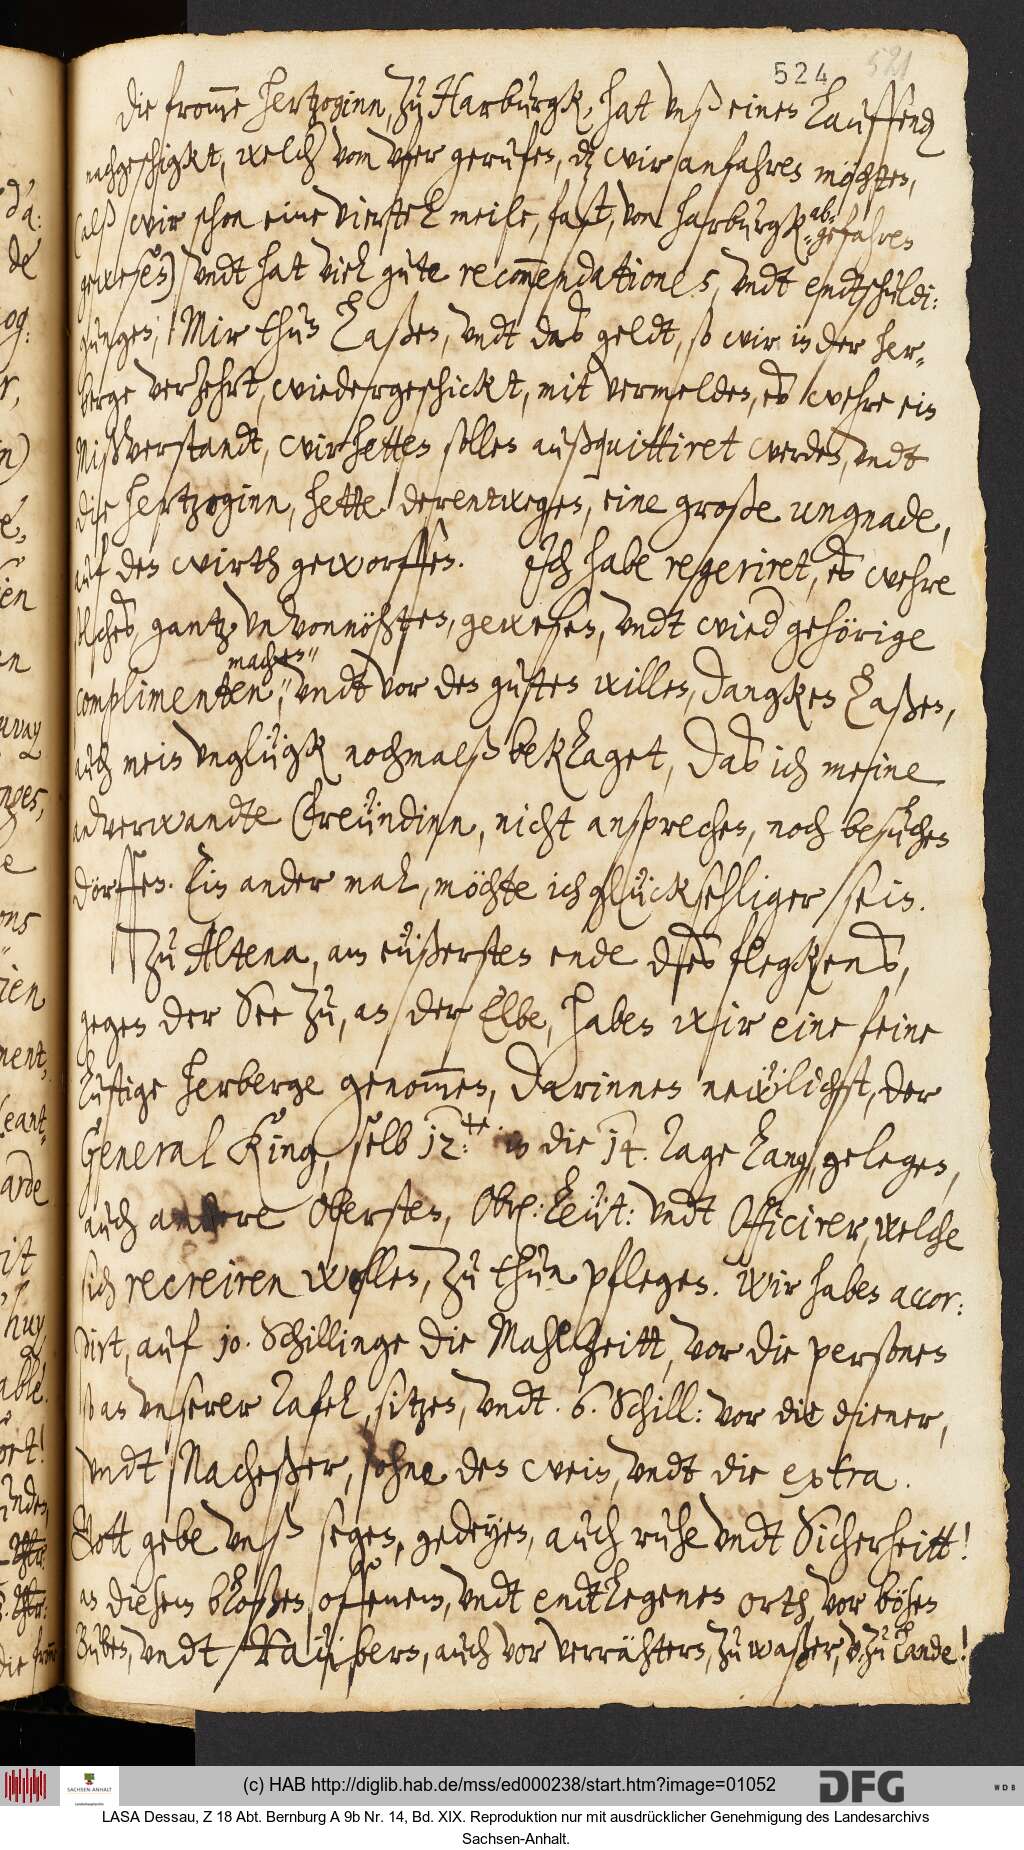 524
521
Die fromme Hertzoginn, zu Harburgk, hat unß einen lauffend
nachgeschigkt, welch vom ufer geruffen, dz wir anfahren möchten,
(alß wir schon eine viertel meile, fast, von Harburgk, ab-gefahren
gewesen) undt hat viel gute recommendationes, undt endtschuldi:
gungen, Mir thun laßen, undt das geldt, so wir in der her-
berge verzehrt, wiedergeschickt, mit vermelden, es wehre ein
Mißverstandt, wir hetten sollen außquittiret werden, undt
die Hertzoginn, hette derentwegen, eine große ungnade,
auf den wirth geworffen. Ich habe regeriret, es wehre
solches, gantz unvonnöhten, gewesen, undt wied gehörige
complimenten, machen undt vor den guten willen, dangken laßen,
auch mein unglügk nochmalß beklaget, das ich meine
adverwandte Freündinn, nicht ansprechen, noch besuchen
dörffen. Ein ander mal, möchte ich glücksehliger sein.
Zu Altena, am eüßersten ende des flegkens,
gegen der See zu, an der Elbe, haben wir eine feine
lustige herberge genommen, darinnen newlichst, der
General King, selb 12.te in die 14. tage lang, gelegen,
auch andere Obersten, Obr: Leüt: undt Officirer, welche
sich recreiren wollen, zu thun pflegen. Wir haben accor:
dirt, auf 10. Schillinge die Mahlzeitt, vor die personen
so an unserer Tafel, sitzen, undt 6. Schill: vor die diener,
undt Nacheßer, ohne den wein, undt die extra.
Gott gebe unß segen, gedeyen, auch ruhe undt Sicherheitt!
an diesem bloßen, offenem, undt endtlegenen orth, vor bösen
Buben, undt Raüibern, auch vor verrähtern, zu waßer, v. zu Lande!
(c) HAB http://diglib.hab.de/mss/ed000238/start.htm?image=01052
SACHSEN-ANHALT
DFG
WDB
LASA Dessau, Z 18 Abt. Bernburg A 9b Nr. 14, Bd. XIX. Reproduktion nur mit ausdrücklicher Genehmigung des Landesarchivs
Sachsen-Anhalt.